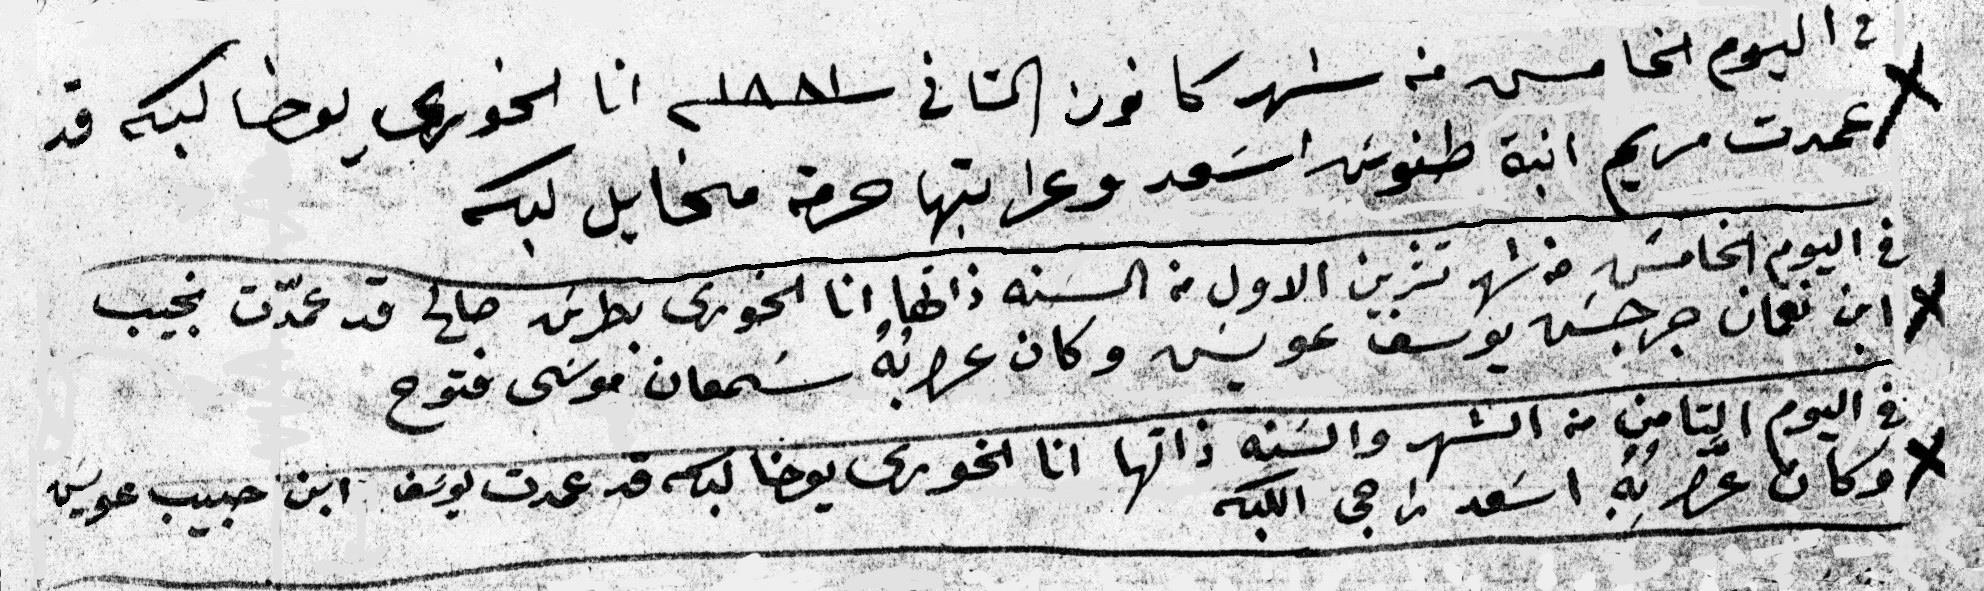 في اليوم الخامس من شهر كانون الثاني سنة ١٨٨١ انا الخوري يوحنا لبكه قد
عمدت مريم ابنة طنوس اسعد وعرابتها حرمة مخايل لبكه
في اليوم الخامس من شهر تشرين الاول من السنه ذاتها انا الخورى بطرس صالح قد عمّدت نجيب
ابن نعمان جرجس يوسف عويس وكان عرابُهُ سمعان موسى فتوح
في اليوم الثامن من الشهر والسنه ذاتها انا الخورى يوحنا لبكه قد عمدت يوسف ابن حبيب عويس
وكان عرّابُهُ اسعد راجى اللبكه